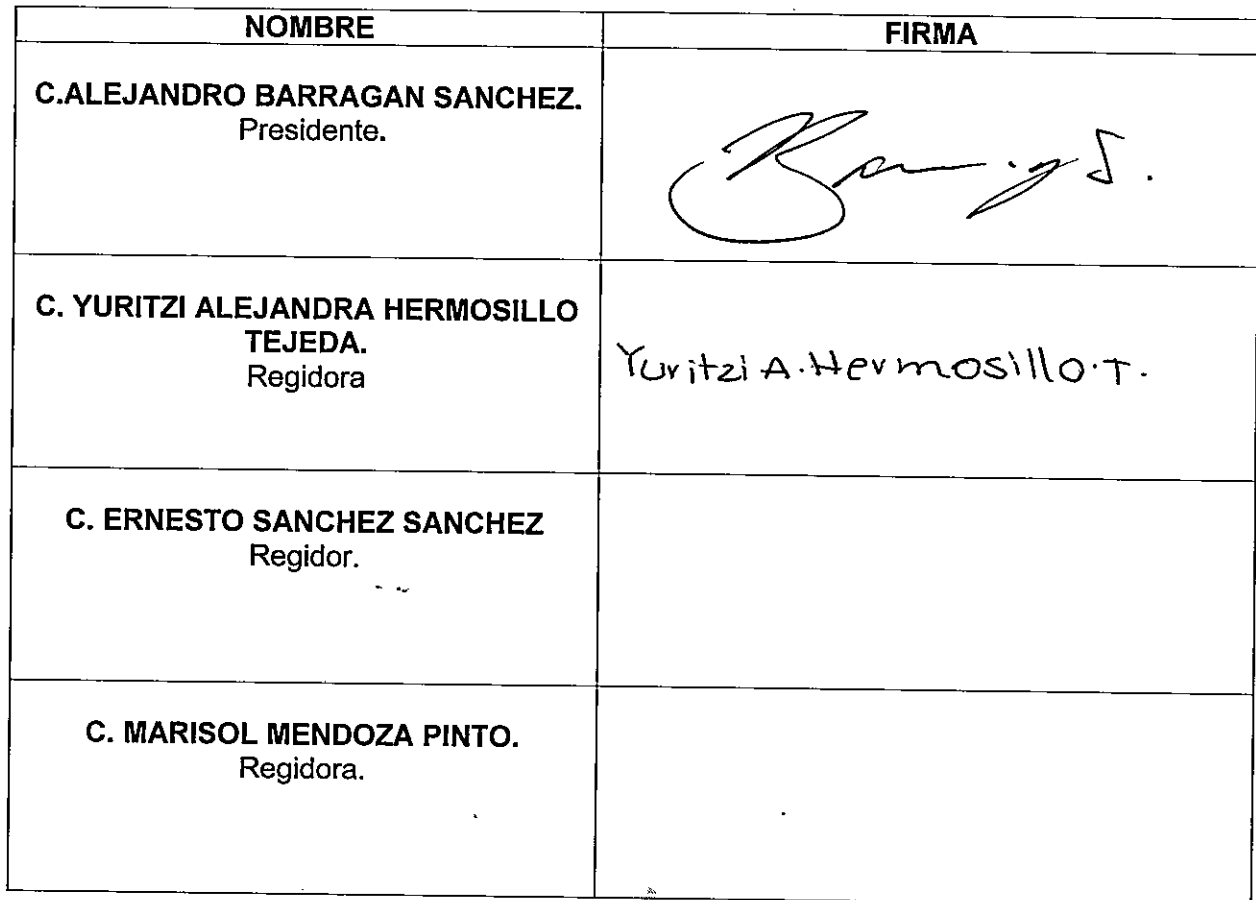 NOMBRE
FIRMA
C.ALEJANDRO BARRAGAN SANCHEZ.
Presidente.
C. YURITZI ALEJANDRA HERMOSILLO
TEJEDA.
Regidora
Yuritzi A. Hermosillo.T.
C. ERNESTO SANCHEZ SANCHEZ
Regidor.
C. MARISOL MENDOZA PINTO.
Regidora.